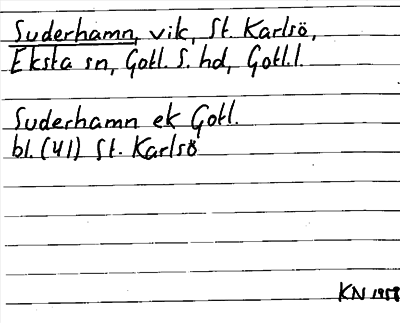 Suderhamn, vik, St. Karlsö,
Eksta sn, Gotl. S. hd, Gotl.l.
Suderhamn ek Gotl.
bl. (41) St. Karlsö
KN 1958